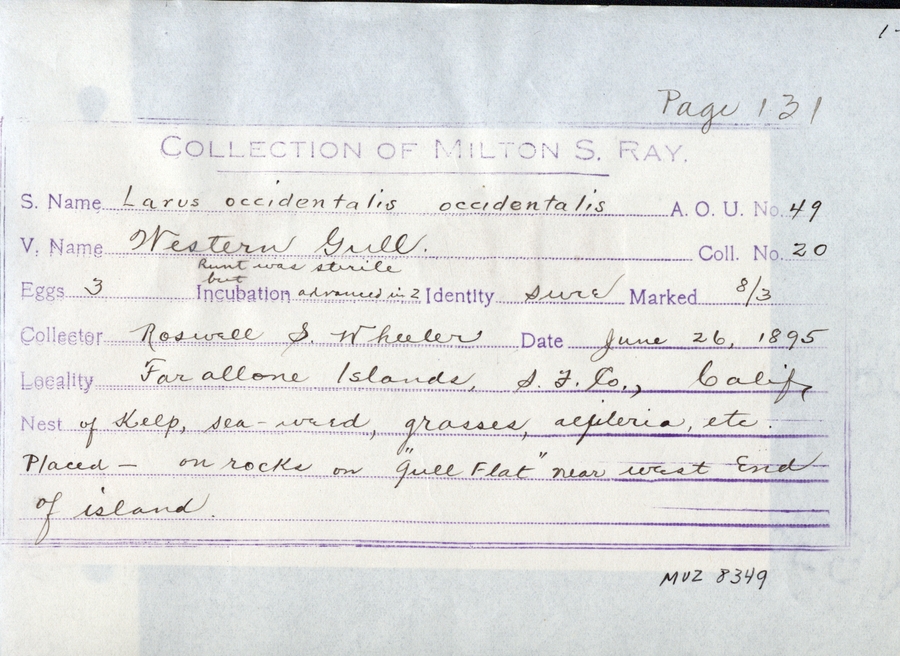 1-
Page 131
COLLECTION OF MILTON S. RAY.
S. Name Larus occidentalis occidentalis A. O. U. No. 49
V. Name Western Gull. Coll. No. 20
Runt was sterile
but
Eggs 3 Incubation advanced in 2 Identity sure Marked 8/3
Collector Roswell S. Wheeler Date June 26, 1895
Locality Farallone Islands, S. F. Co., Calif,
Nest of Kelp, sea-weed, grasses, etc.
Placed — on rocks on "Gull Flat" near west End
of island.
MVZ 8349